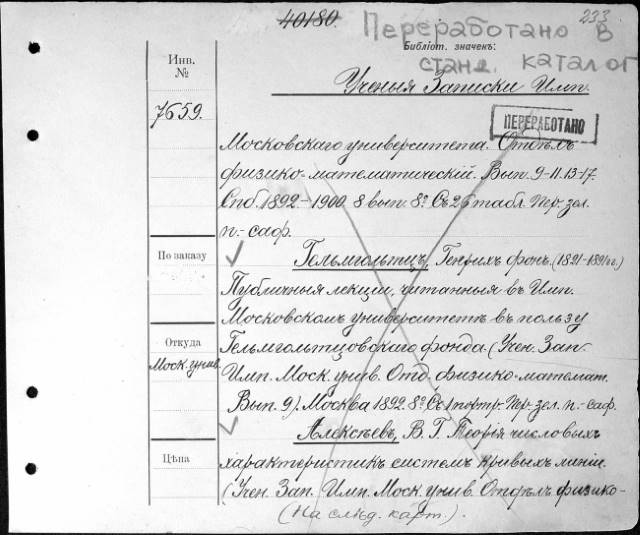 40180.
233
Переработано в
Библіот. значекъ:
станд. каталог
Инв.
№
Ученыя Записки Имп.
7659.
ПЕРЕРАБОТАНО
Московскаго университета. Отдѣлъ
физико-математическій. Вып. 9-11. 13-17.
Спб. 1892-1900. 8 вып. 8º. Съ 26 табл. Пер. зел.
п.-саф.
По заказу
Гельмгольтцъ, Генрихъ фонъ. (1821-1894 гг.)
Публичныя лекціи, читанныя въ Имп.
Московскомъ университетѣ въ пользу
Откуда
Гельмгольтцовскаго фонда. (Учен. Зап.
Моск. унив.
Имп. Моск. унив. Отд. физико-математ.
Вып. 9). Москва 1892. 8º. Съ 1 портр. Пер. зел. п.-саф.
Алексѣевъ, В. Г. Теорія числовыхъ
Цѣна
характеристикъ системъ кривыхъ линій.
(Учен. Зап. Имп. Моск. унив. Отдѣлъ физико-
(На слѣд. карт.).